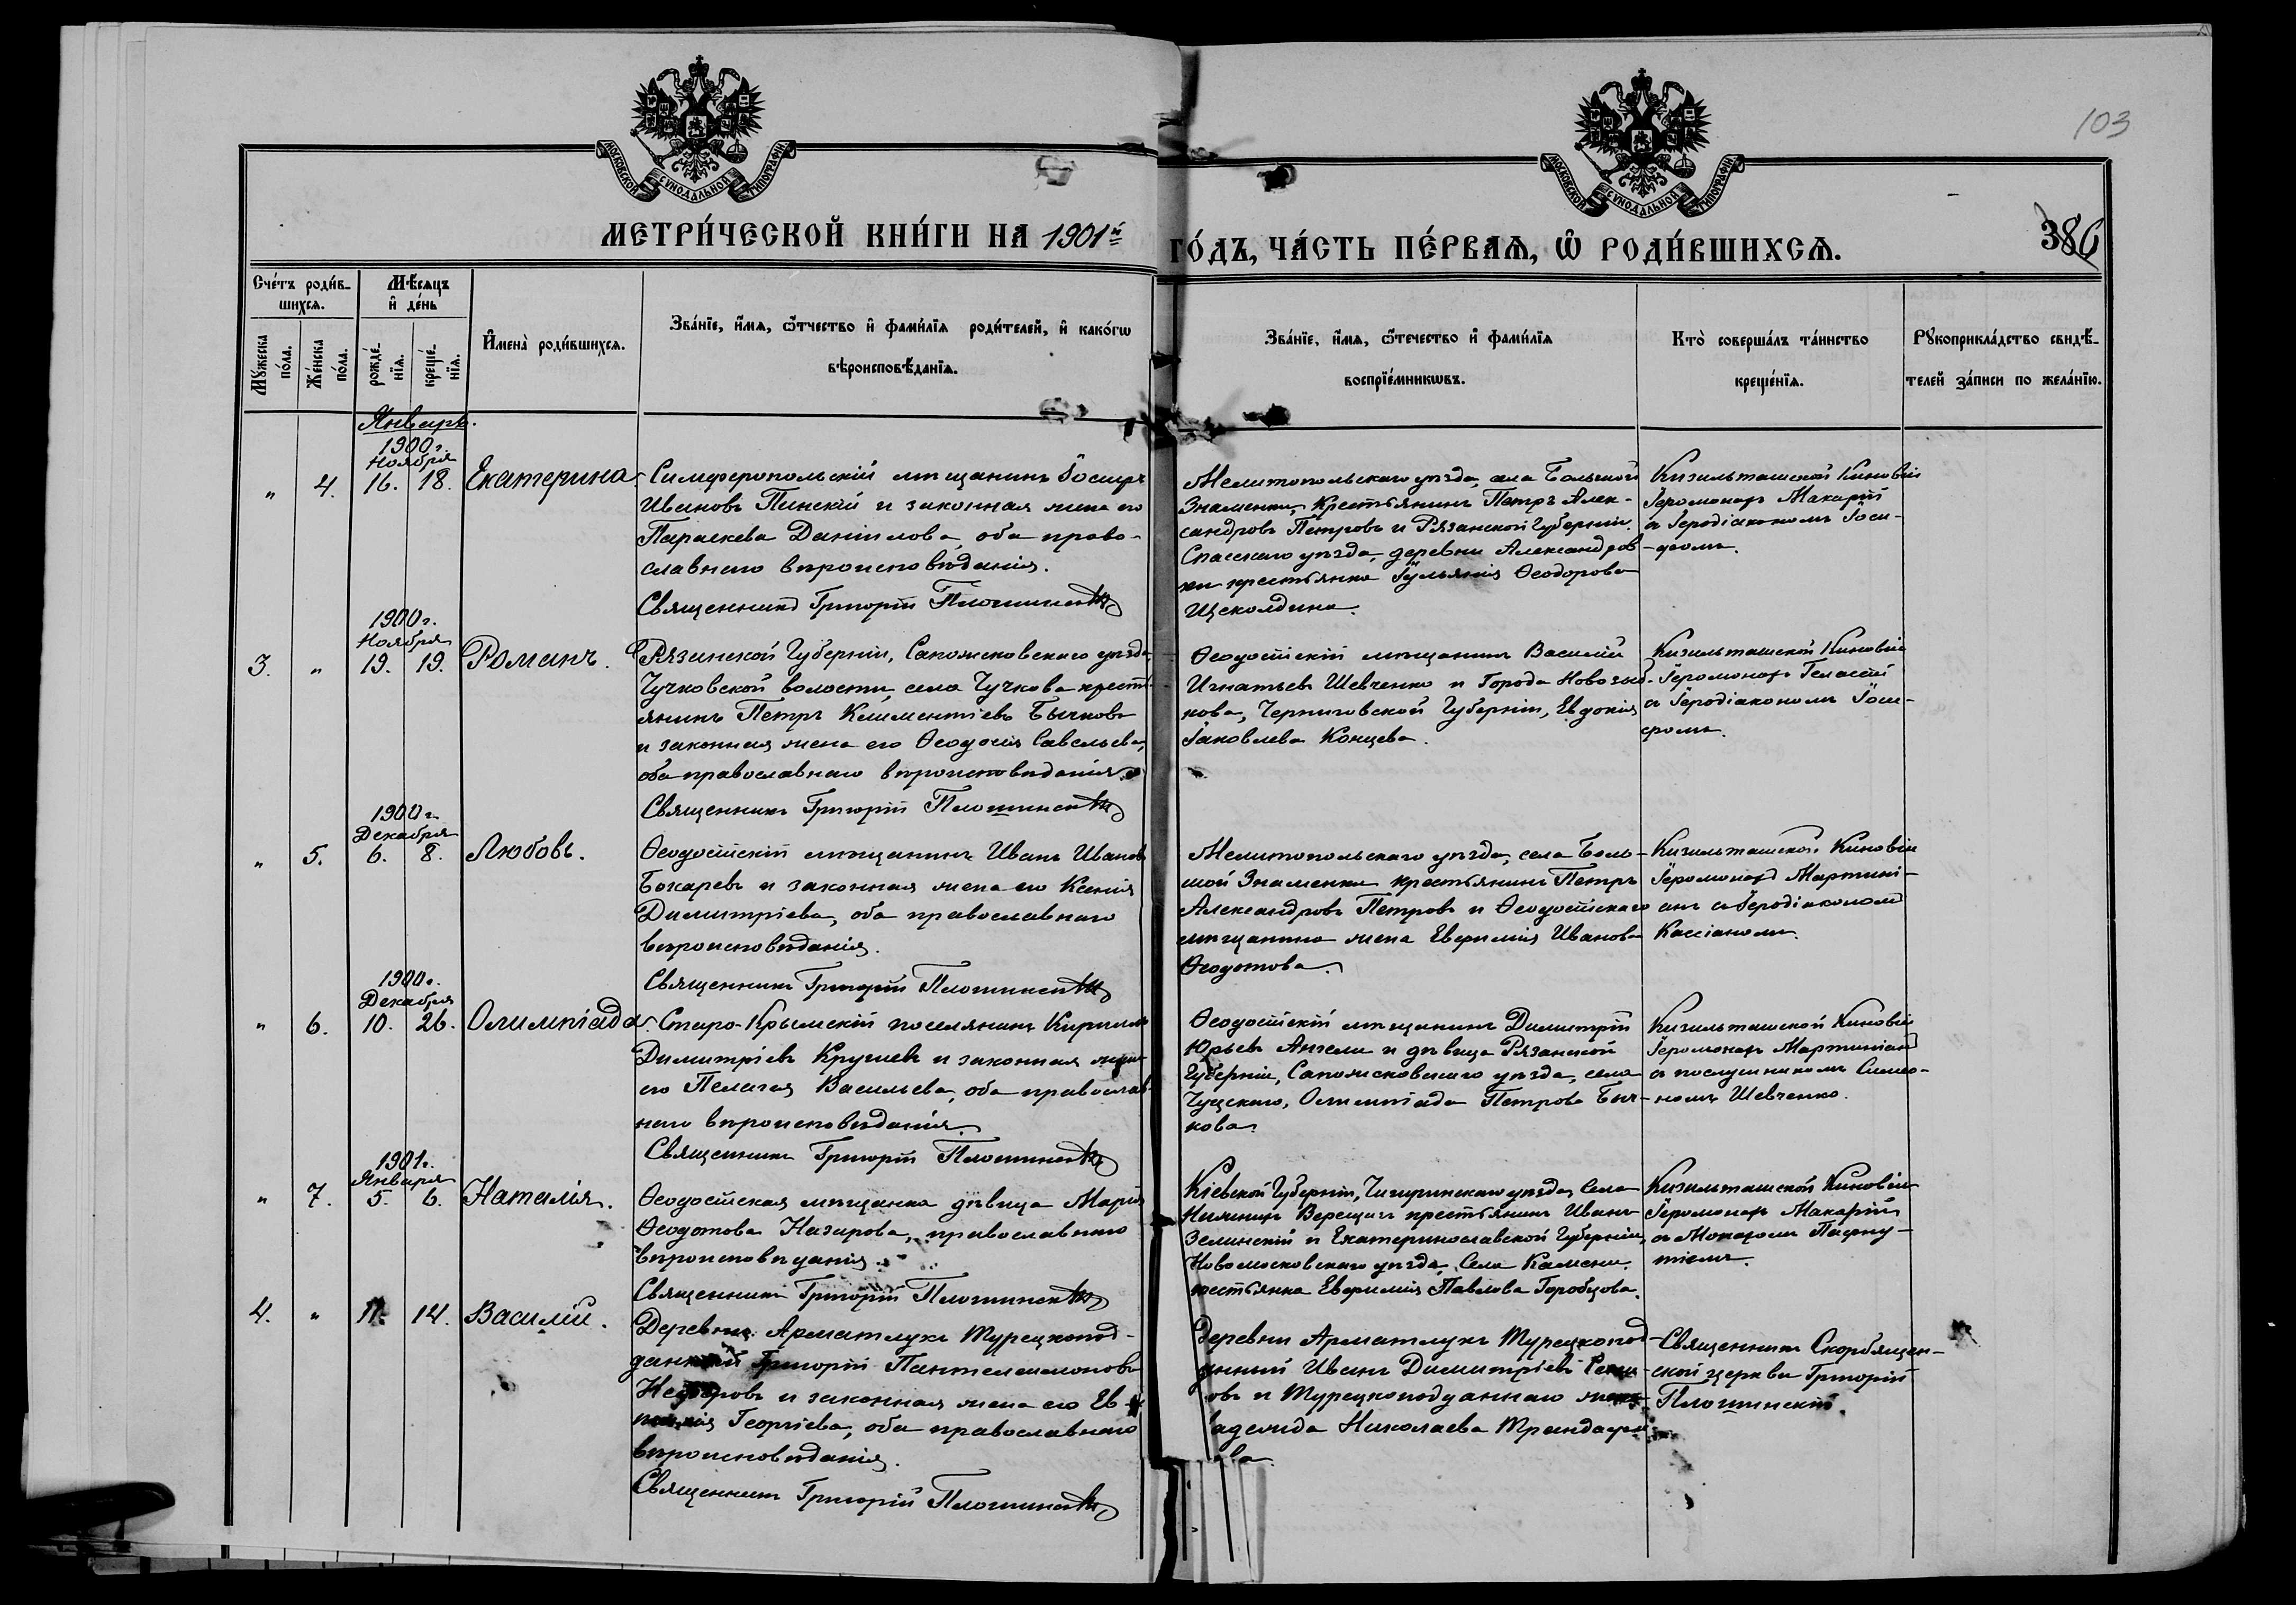 103
МОСКОВСКОЙ СѴНОДАЛЬНОЙ ТИПОГРАФІИ
МОСКОВСКОЙ СѴНОДАЛЬНОЙ ТИПОГРАФІИ
МЕТРИ́ЧЕСКОЙ КНИ́ГИ НА 1901й ГО́ДЪ, ЧА́СТЬ ПЕ́РВАѦ, Ѿ РОДИ́ВШИХСѦ.
386
Сче́тъ роди́в-
шихсѧ.
Мꙋ́жеска
по́ла.
Же́нска
по́ла.
Мѣ́сѧцъ
и҆ де́нь
рожде́-
нїѧ.
креще́-
нїѧ.
И҆мена̀ роди́вшихсѧ.
Зва́нїе, и҆́мѧ, ѻ҆́тчество и҆ фами́лїѧ роди́телей, и҆ како́гѡ
вѣроисповѣ́данїѧ.
Зва́нїе, и҆́мѧ, ѻ҆те́чество и҆ фами́лїѧ
воспрїе́мникѡвъ.
Кто̀ соверша́лъ та́инство
креще́нїѧ.
Рꙋкоприкла́дство свидѣ́-
телей за́писи по жела́нїю.
Январь.
1900 г.
Ноября
" 4. 16. 18. Екатерина
Симферопольскій мѣщанинъ Іосифъ
Ивановъ Пинскій и законная жена его
Параскева Даніилова, оба право-
славнаго вѣроисповѣданія.
Священникъ Григорій Плошинскій
Мелитопольскаго уѣзда, села Большой
Знаменки, крестьянинъ Петръ Алек-
сандровъ Петровъ и Рязанской Губерніи
Спасскаго уѣзда, деревни Александров-
ки крестьянка Іульянія Ѳеодорова
Щеколдина.
Кизильташской Киновіи
Іеромонахъ Макарій
съ Іеродіакономъ Іоси-
фомъ.
1900 г.
Ноября
3. " 19. 19. Романъ.
Рязанской Губерніи, Сапожковскаго уѣзда,
Чучковской волости, села Чучкова кресть
янинъ Петръ Климентіевъ Бычковъ
и законная жена его Ѳеодосія Савельева,
оба православнаго вѣроисповѣданія.
Священникъ Григорій Плошинскій
Ѳеодосійскій мѣщанинъ Василій
Игнатьевъ Шевченко и Города Новозыб-
кова, Черниговской Губерніи, Евдокія
Іаковлева Концева.
Кизильташской Киновіи
Іеромонахъ Геласій
съ Іеродіакономъ Іоси-
фомъ.
1900 г.
Декабря
" 5. 6. 8. Любовь.
Ѳеодосійскій мѣщанинъ Иванъ Ивановъ
Бокаревъ и законная жена его Ксенія
Димитріева, оба православнаго
вѣроисповѣданія.
Священникъ Григорій Плошинскій
Мелитопольскаго уѣзда, села Боль-
шой Знаменки крестьянинъ Петръ
Александровъ Петровъ и Ѳеодосійскаго
мѣщанина жена Евфимія Иванова
Ѳеодотова.
Кизильташской Киновіи
Іеромонахъ Мартині-
анъ съ Іеродіакономъ
Кассіаномъ.
1900 г.
Декабря
" 6. 10. 26. Олимпіада.
Старо-Крымскій поселянинъ Кириллъ
Димитріевъ Кручевъ и законная жена
его Пелагея Васильева, оба православ-
наго вѣроисповѣданія.
Священникъ Григорій Плошинскій
Ѳеодосійскій мѣщанинъ Димитрій
Юрьевъ Ангели и дѣвица Рязанской
Губерніи, Сапожковскаго уѣзда, села
Олимпіада Петрова Быч-
кова.
Кизильташской Киновіи
Іеромонахъ Мартиніанъ
съ послушникомъ Симео-
номъ Шевченко.
1901 г.
Января
" 7. 5. 6. Наталія.
Ѳеодосійская мѣщанка дѣвица Марія
Ѳеодотова Назарова, православнаго
вѣроисповѣданія.
Священникъ Григорій Плошинскій
Кіевской Губерніи, Чигиринскаго уѣзда, Села
крестьянинъ Иванъ
Зелинскій и Екатеринославской Губерніи,
Новомосковскаго уѣзда, Села Камени
крестьянка Евфимія Павлова Горобцова.
Кизильташской Киновіи
Іеромонахъ Макарій
съ Монахомъ Пафну-
тіемъ.
4. " 11. 14. Василій.
Деревни Арматлукъ Турецкопод-
данный Григорій Пантелеимоновъ
и законная жена его
Георгіева, оба православнаго
вѣроисповѣданія.
Священникъ Григорій Плошинскій
Деревни Арматлукъ Турецкопод-
данный Иванъ Димитріевъ
и Турецкоподданнаго жена
Николаева
Священникъ Скорбящен-
ской церкви Григорій
Плошинскій.